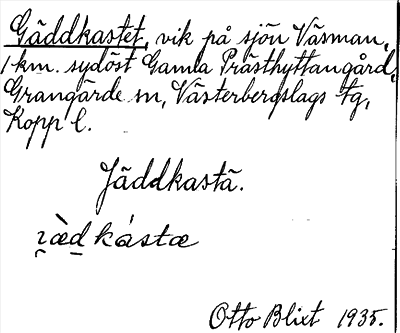 Gäddkastet, vik på sjön Väsman,
1 km. sydöst Gamla Prästhyttangård,
Grangärde sn, Västerbergslags tg,
Kopp l.
Jäddkastä.
i̯æ̀d̠ kástæ
Otto Blixt 1935.